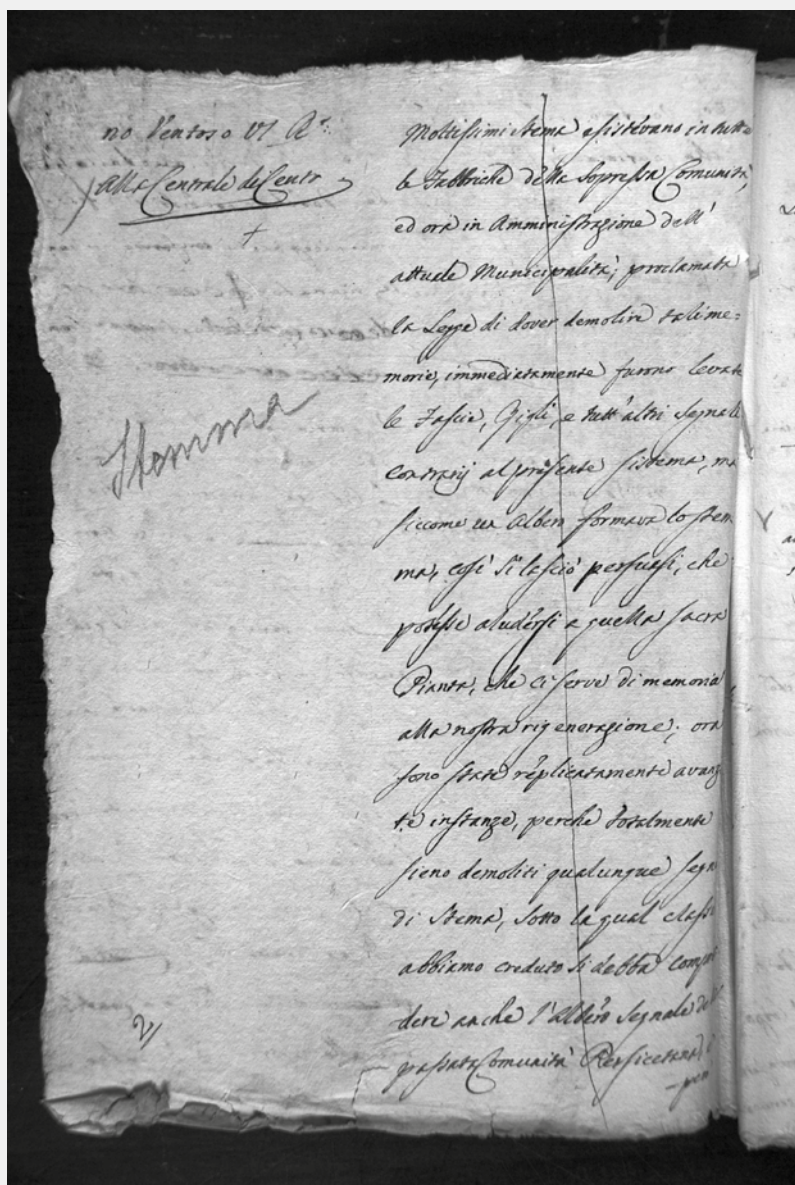 no Ventoso VI Aº:
Alla Centrale de Cento
+
Stemma
2/
Moltissimi Stema esistevano in tutte
le Fabbriche della Sopressa Comunità,
ed ora in Amministrazione dell'
attuale Municipalità; proclamata
la Legge di dover demolire tali me=
morie, immediatamente furono levate
le Fascie, Gigli, e tutt'altri Segnali
contrarij al presente sistema, ma
siccome un Albero formava lo stem
ma, così si lasciò persuasi, che
potesse aludersi a quella sacra
Pianta, che ci serve di memoria
alla nostra rigenerazione; ora
sono state replicatamente avanza
te instanze, perchè totalmente
sieno demoliti qualunque segno
di Stema, sotto la qual classe
abbiamo creduto si debba compren
dere anche l'Albero Segnale della
passata Comunità Persicetana,